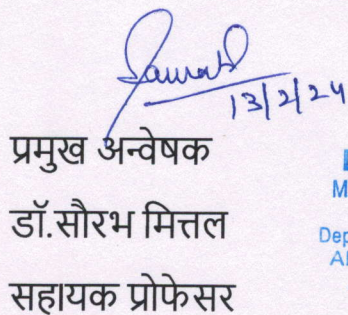 13/2/24
प्रमुख अन्वेषक
डॉ.सौरभ मित्तल
सहायक प्रोफेसर